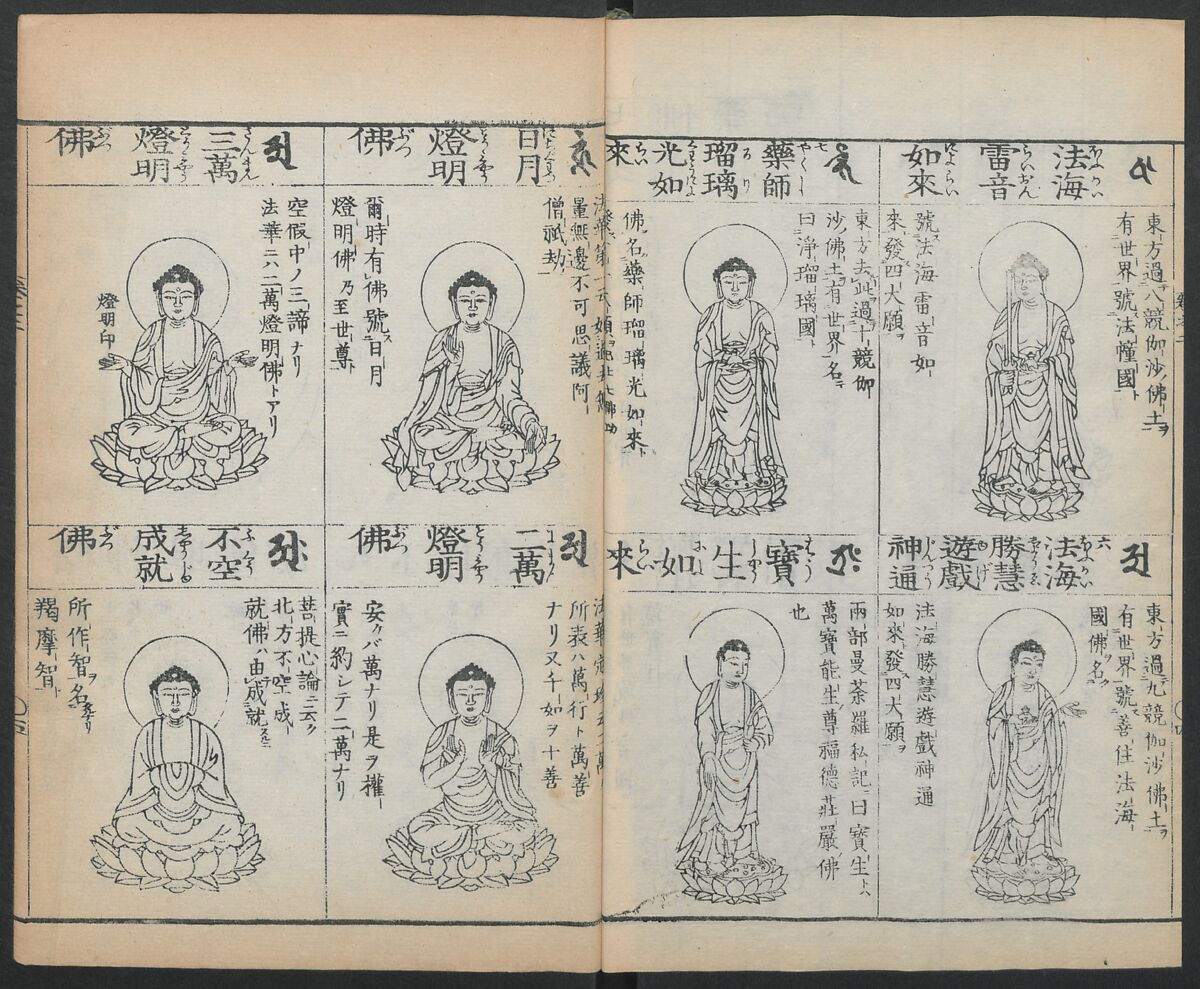 法海
雷音
如來
東方過八競伽沙佛土ヲ
有世界號法幢國ト
號法海雷音如
來發四大願ヲ
六
法海
勝慧
遊戲
神通
東方過九競伽沙佛土ヲ
有世界號善住法海
國佛名ク
法海勝慧遊戲神通
如來發四大願ヲ
七
藥師
瑠璃
光如
來
東方去此過十競伽
沙佛土有世界名
曰淨瑠璃國
佛名藥師瑠璃光如來ト
寶生如來
兩部曼荼羅私記曰寶生トハ
萬寶能生尊福德莊嚴佛
也
日月
燈明
佛
量無邊不可思議阿
僧祇劫
爾時有佛號日月
燈明佛乃至世尊
二萬
燈明
佛
所表ハ萬行ト萬善
ナリ又千如ヲ十善
安クバ萬ナリ是ヲ權
實ニ約シテ二萬ナリ
三萬
燈明
佛
空假中ノ三諦ナリ
法華ニハ二萬燈明佛トアリ
燈明印
不空
成就
佛
菩提心論ニ云ク
北方不空成
就佛ハ由成就
所作智ヲ名
羯摩智ト